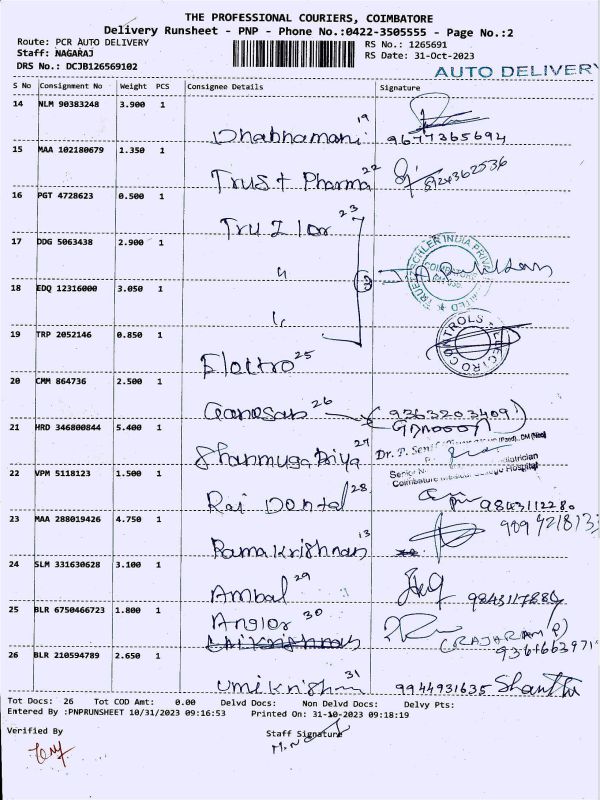 THE PROFESSIONAL COURIERS, COIMBATORE
Delivery Runsheet - PNP - Phone No.:0422-3505555 - Page No.:2
Route: PCR AUTO DELIVERY
RS No.: 1265691
Staff: NAGARAJ
RS Date: 31-Oct-2023
DRS No.: DCJB126569102
AUTO DELIVERY
S No Consignment No Weight PCS Consignee Details Signature
14 NLM 90383248 3.900 1
Dhabhamani 19 9677365694
15 MAA 102180679 1.350 1
Trust Pharma 22 8124362536
16 PGT 4728623 0.500 1
Truzlor 23
17 DDG 5063438 2.900 1
"
COIMBATORE
18 EDQ 12316000 3.050 1
"
19 TRP 2052146 0.850 1
Electro 25
20 CMM 864736 2.500 1
Ganesan 26 (9363203409)
21 HRD 346800844 5.400 1
Shanmuga Priya 27
Dr. P.
Coimbatore Medical College Hospital
22 VPM 5118123 1.500 1
Rai Dental 28 9843112280
23 MAA 288019426 4.750 1
9894218133
Ramakrishnan 13
24 SLM 331630628 3.100 1
Ambal 29
25 BLR 6750466723 1.800 1
Anglor 30
(RAJARAM P)
26 BLR 210594789 2.650 1
Umikrishnan 31 9944931635 Shantha
Tot Docs: 26 Tot COD Amt: 0.00 Delvd Docs: Non Delvd Docs: Delvy Pts:
Entered By :PNPRUNSHEET 10/31/2023 09:16:53 Printed On: 31-10-2023 09:18:19
Verified By Staff Signature